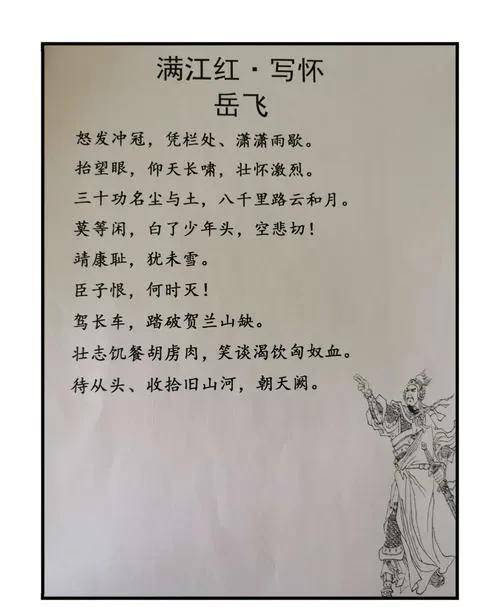 满江红·写怀
岳飞
怒发冲冠，凭栏处、潇潇雨歇。
抬望眼，仰天长啸，壮怀激烈。
三十功名尘与土，八千里路云和月。
莫等闲，白了少年头，空悲切！
靖康耻，犹未雪。
臣子恨，何时灭！
驾长车，踏破贺兰山缺。
壮志饥餐胡虏肉，笑谈渴饮匈奴血。
待从头、收拾旧山河，朝天阙。